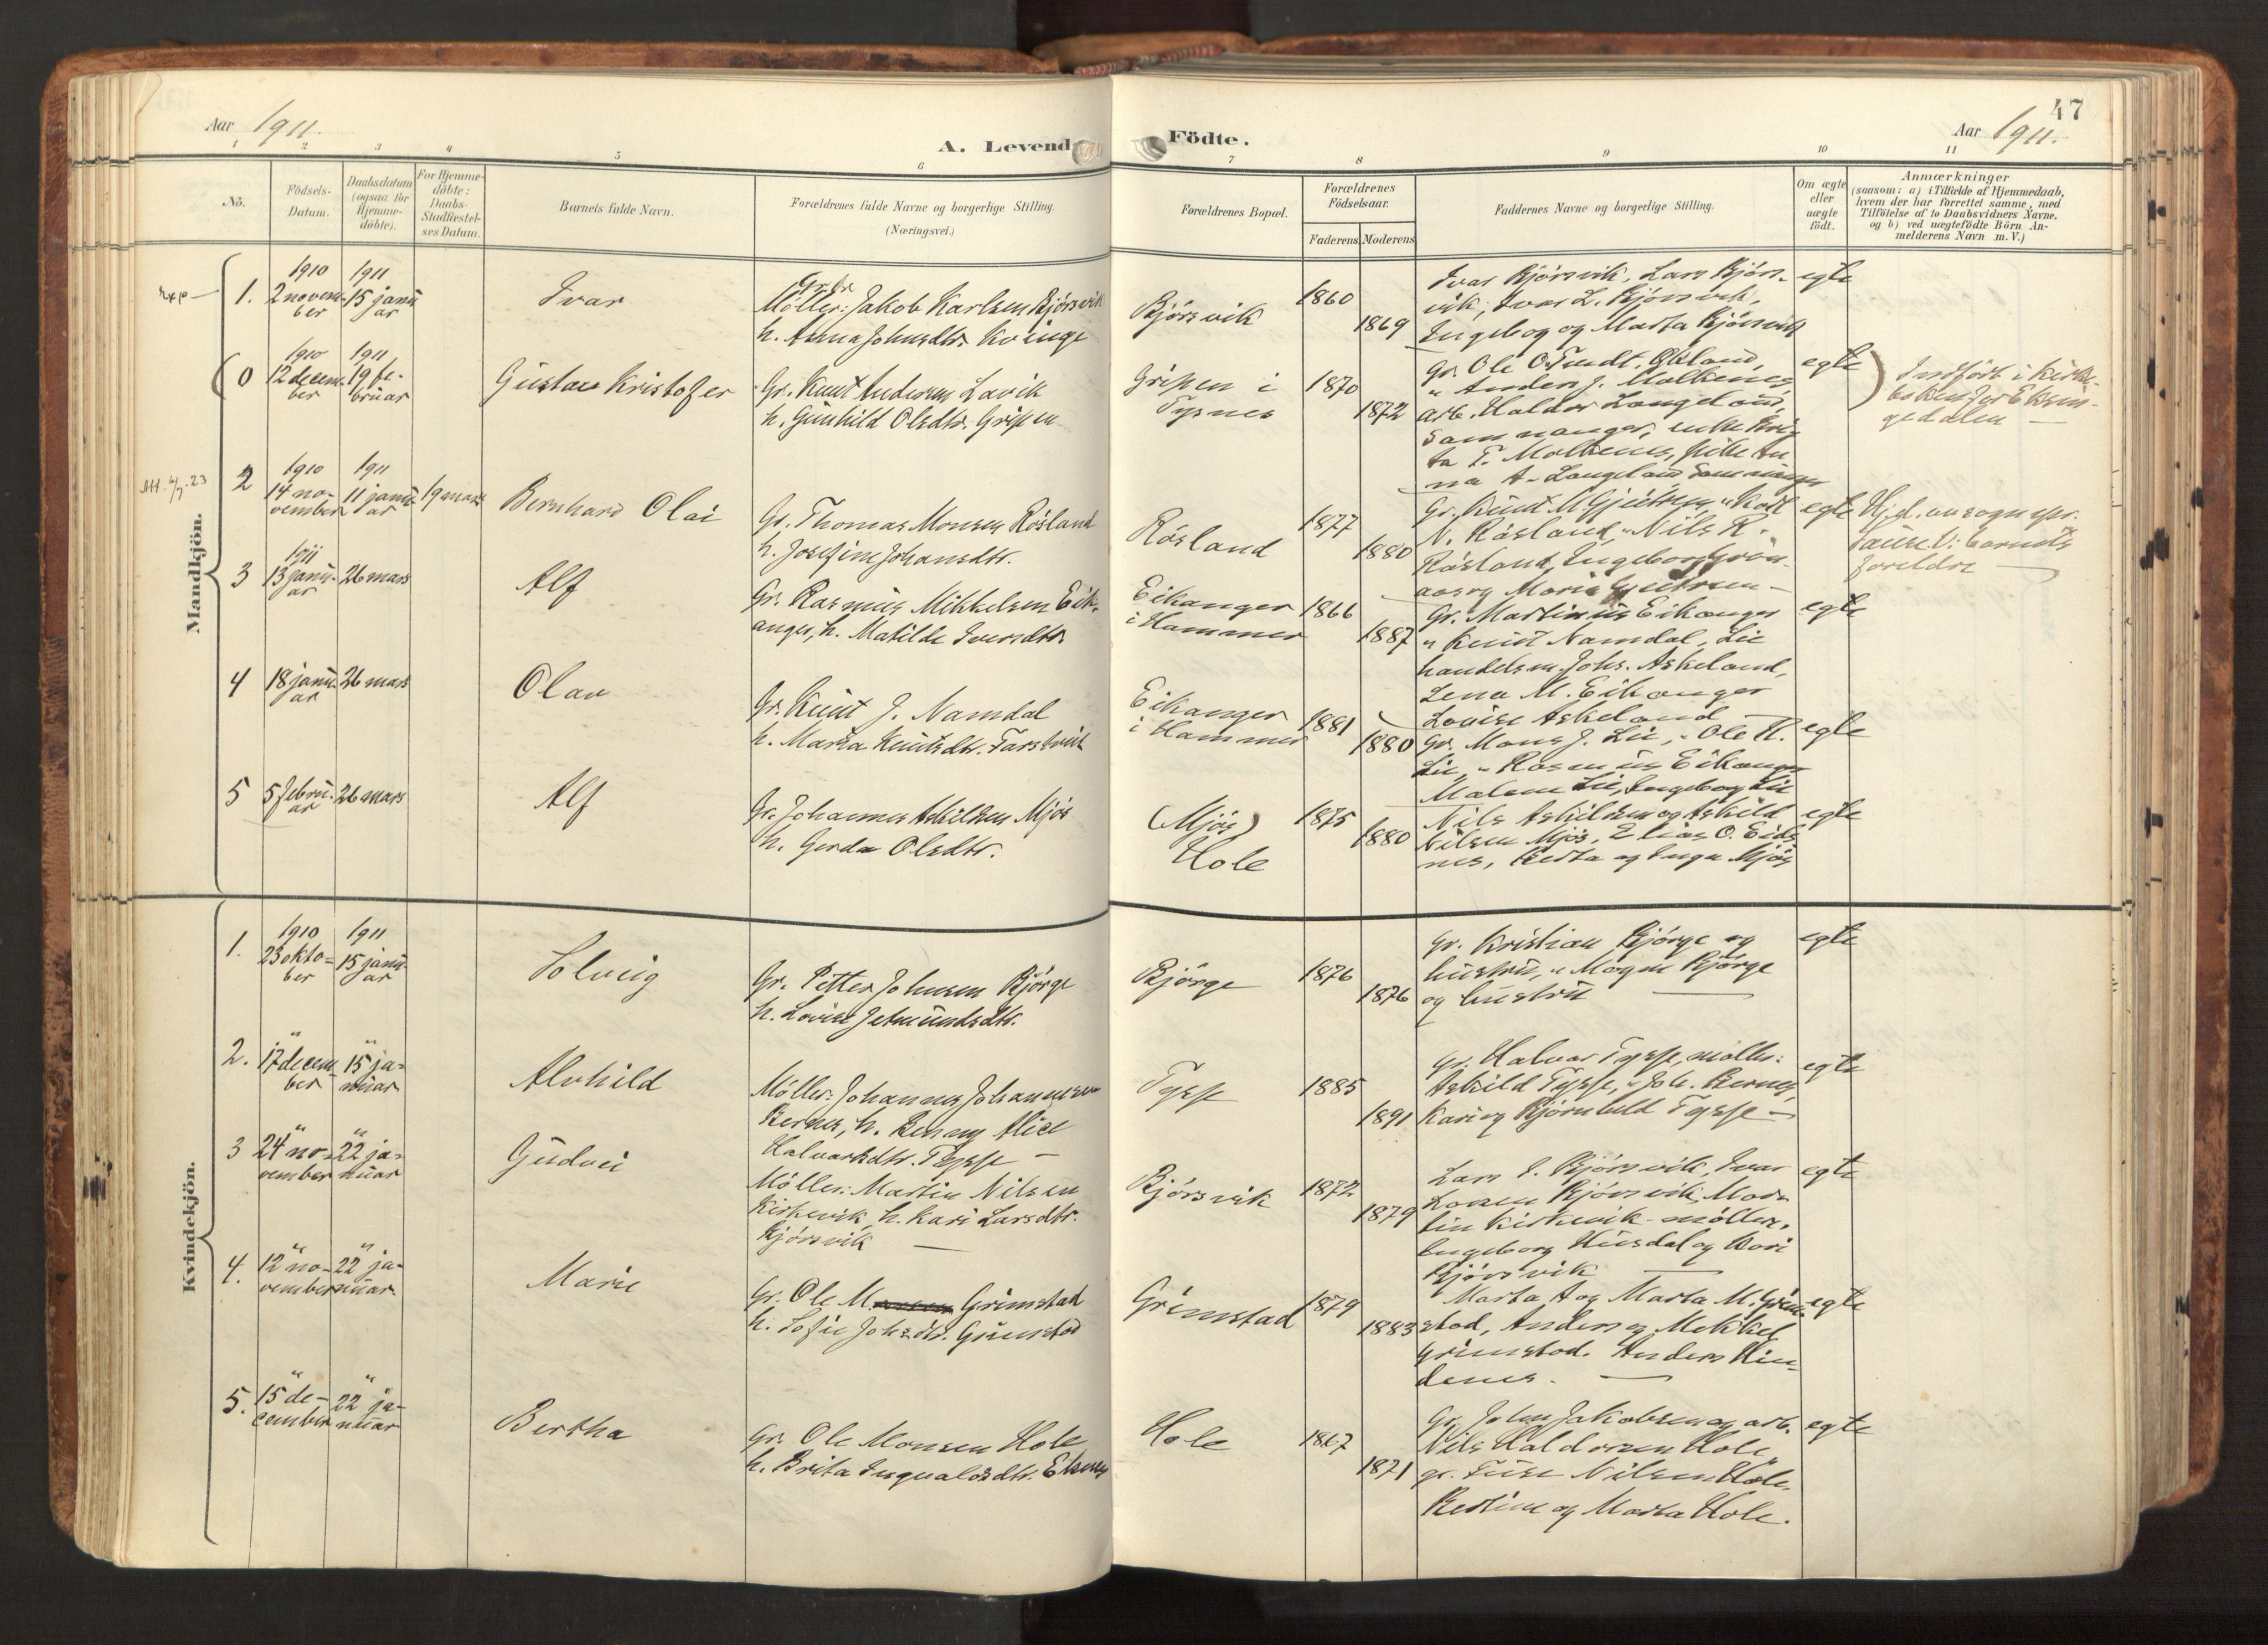 47
Aar 1911.
A. Levende Födte.
Aar 1911.
1 2 3 4 5 6 7 8 9 10 11
No.
Födsels-
Datum.
Daabsdatum
(ogsaa for
Hjemme-
döbte).
For Hjemme-
döbte:
Daabs-
Stadfæstel-
ses Datum.
Barnets fulde Navn.
Forældrenes fulde Navne og borgerlige Stilling.
(Næringsvei.)
Forældrenes Bopæl.
Forældrenes
Födselsaar.
Faderens. Moderens.
Faddernes Navne og borgerlige Stilling.
Om ægte
eller
uægte
födt.
Anmærkninger
(saasom: a) i Tilfælde af Hjemmedaab,
hvem der har forrettet samme, med
Tilföielse af to Daabsvidners Navne.
og b) ved uægtefödte Börn An-
melderens Navn m. V.)
Mandkjön.
1.
1910
2 novem-
ber
1911
15 janu-
ar
Ivar
Möller: Jakob Karlsen Bjørsvik
h. Anna Johnsdtr. Kvinge
Bjørsvik
1860
1869
Ivar Bjørsvik, Lars Bjørs-
vik, Ivar L. Bjørsvik,
Ingeborg og Marta Bjørsvik
egte
0
1910
12 decem-
ber
1911
19 fe-
bruar
Gustav Kristofer
Gr. Knut Andersen Lavik
h. Gunhild Olsdtr. Gripen
Gripen i
Tysnes
1870
1872
Gr. Ole O. Tundt. Økland,
" Anders J. Molkenes
arb. Haldor Langeland,
Samnanger, enke Bri-
ta T. Molkenes, pike An-
na A. Langeland Samnanger
egte
Indført i kirke-
boken for Eksin-
gedalen —
2
1910
14 no-
vember
1911
11 janu-
ar
19 mars
Bernhard Olai
Gr. Thomas Monsen Røsland
h. Josefine Johansdtr.
Røsland
1877
1880
Gr. Knut M. Gjeitrem, "
N. Røsland, " Nils R.
Røsland, Ingeborg
og Marie Gjeitrem —
egte
Hj.d. av sognepr.
barnets
foreldre —
3
1911
13 janu-
ar
26 mars
Alf
Gr. Rasmus Mikkelsen Eik-
anger, h. Matilde Iversdtr.
Eikanger
i Hammer
1866
1887
Gr. Martinius Eikanger
" Knut Namdal, Lie
handelsm. Johs. Askeland,
Lena M. Eikanger
Louise Askeland
egte
4
18 janu-
ar
26 mars
Olav
Gr. Knut J. Namdal
h. Marta Knutsdtr. Farstveit
Eikanger
i Hammer
1881
1880
Gr. Mons J. Lie, " Ole H.
Lie, " Rasmus Eikanger
Malene Lie, Ingeborg Lie
egte
5
5 febru-
ar
26 mars
Alf
Gr. Johannes Askildsen Mjøs
h. Gerda Olsdtr.
(Mjøs)
Hole
1875
1880
Nils Askildsen og Askild
Nilsen Mjøs, Elias O. Eids-
nes, Berta og Inga Mjøs
egte
Kvindekjön.
1.
1910
23 okto-
ber
1911
15 janu-
ar
Solveig
Gr. Petter Johnsen Bjørge
h. Lovise Jetmundsdtr.
Bjørge
1876
1876
Gr. Kristian Bjørge og
hustru, " Mogns Bjørge
og hustru —
egte
2.
"
17 decem-
ber
"
15 ja-
nuar
Alvhild
Möller: Johannes Johannessen
Bernes, h. Benny Alice
Halvorsdtr. Tysse —
Tysse
1885
1891
Gr. Halvor Tysse, møller:
Askild Tysse, " Joh. Bernes,
Kari og Bjørnhild Tysse —
egte
3
"
24 no-
vember
"
22 ja-
nuar
Gudvei
Möller: Martin Nilsen
Kirkevik, h. Kari Larsdtr.
Bjørsvik —
Bjørsvik
1872
1879
Lars I. Bjørsvik, Ivar
Larsen Bjørsvik, Mar-
tin Kirkevik møller,
Ingeborg Husdal og Kari
Bjørsvik —
egte
4.
"
12 no-
vember
"
22 ja-
nuar
Marie
Gr. Ole M. Grimstad
h. Sofie Johsdtr. Grimstad
Grimstad
1879
1883
Marta A og Marta M. Grim-
stad, Anders og Mikkel
Grimstad. Anders Hin-
denes. —
egte
5.
"
15 de-
cember
"
22 ja-
nuar
Bertha
Gr. Ole Monsen Hole
h. Brita Ingvaldsdtr. Elsnes
Hole
1867
1871
Gr. John Jakobsen og arb.
Nils Haldorsen Hole
gr. Nilsen Hole.
Bertine og Marta Hole.
egte